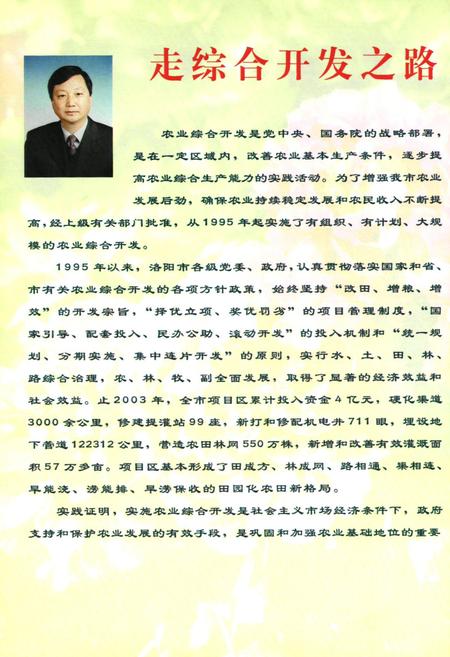 走综合开发之路
农业综合开发是党中央、国务院的战略部署，
是在一定区域内，改善农业基本生产条件，逐步提
高农业综合生产能力的实践活动。为了增强我市农业
发展后劲，确保农业持续稳定发展和农民收入不断提
高，经上级有关部门批准，从1995年起实施了有组织、有计划、大规
模的农业综合开发。
1995年以来，洛阳市各级党委、政府，认真贯彻落实国家和省、
市有关农业综合开发的各项方针政策，始终坚持“改田、增粮、增
效”的开发宗旨，“择优立项、奖优罚劣”的项目管理制度，“国
家引导、配套投入、民办公助、滚动开发”的投入机制和“统一规
划、分期实施、集中连片开发”的原则，实行水、土、田、林、
路综合治理，农、林、牧、副全面发展，取得了显著的经济效益和
社会效益。止2003年，全市项目区累计投入资金4亿元，硬化渠道
3000余公里，修建提灌站99座，新打和修配机电井711眼，埋设地
下管道122312公里，营造农田林网550万株，新增和改善有效灌溉面
积57万多亩。项目区基本形成了田成方、林成网、路相通、渠相连、
旱能浇、涝能排、旱涝保收的田园化农田新格局。
实践证明，实施农业综合开发是社会主义市场经济条件下，政府
支持和保护农业发展的有效手段，是巩固和加强农业基础地位的重要